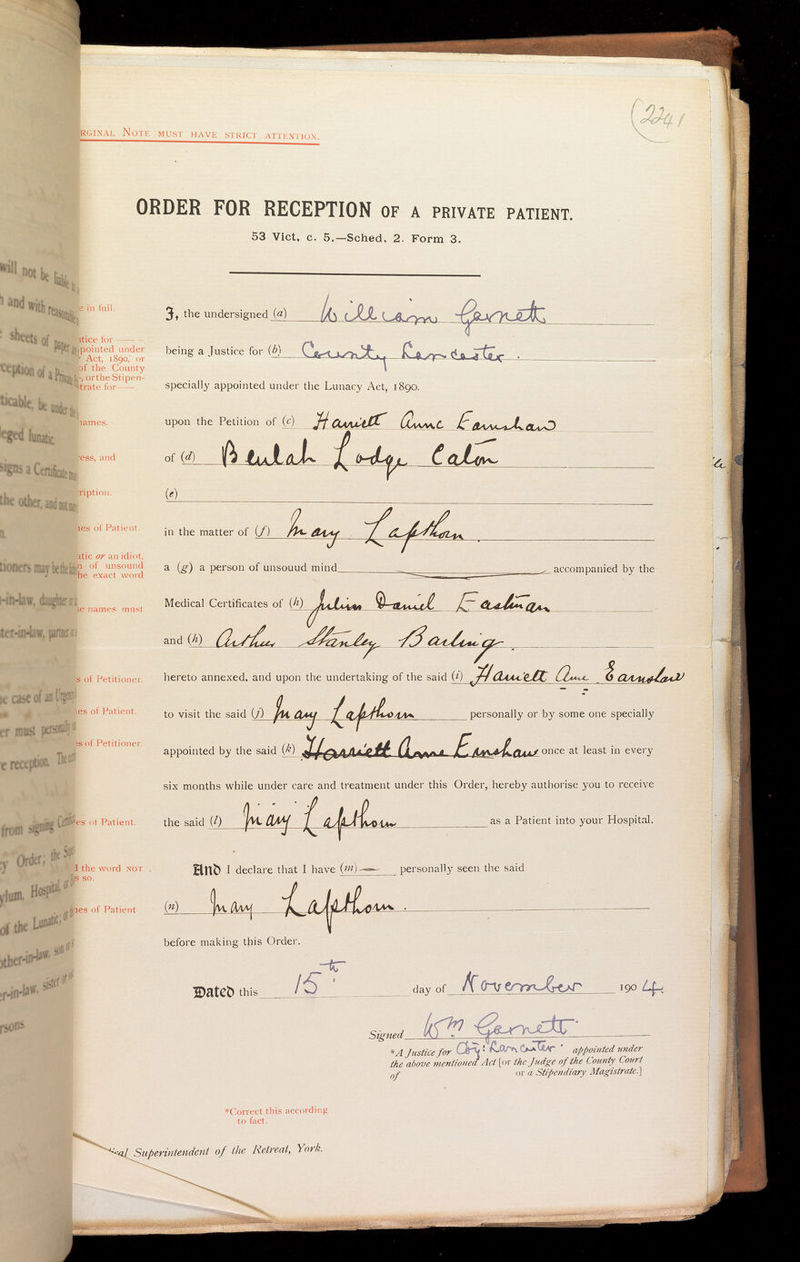 (2241
RGINAL NOTE MUST HAVE STRICT ATTENTION.
ORDER FOR RECEPTION OF A PRIVATE PATIENT.
53 Vict, c. 5.—Sched. 2. Form 3.
will not be
e in full.
and with
I, the undersigned (a) William Garnett
sheets of
stice for
pointed under
Act, 1890, or
of the County
, or the Stipen-
strate for
being a Justice for (b) County Lancaster .
specially appointed under the Lunacy Act, 1890.
names.
upon the Petition of (c) Harriett Anne Earnshaw
eged lunatic
ess, and
of (d) Beulah Lodge Caton
signs a Certificate
ription.
(e)
the other, and not
es of Patient.
in the matter of (f) Mary Lapthorn .
atic or an idiot,
n of unsound
he exact word
tioners may be the
a (g) a person of unsouud mind accompanied by the
-in-law, daughter
e names must
Medical Certificates of (h) Julian Daniel Eastman
ter-in-law, partner
and (h) Arthur Stanley Barling .
s of Petitioner.
hereto annexed, and upon the undertaking of the said (i) Harriett Anne Earnshaw
e case of an Urgency
es of Patient.
to visit the said (j) Mary Lapthorn personally or by some one specially
er must personally
s of Petitioner.
appointed by the said (k) Harriett Anne Earnshaw once at least in every
e reception. The
six months while under care and treatment under this Order, hereby authorise you to receive
from signing
es of Patient.
the said (l) Mary Lapthorn as a Patient into your Hospital.
y Order; the
d the word NOT
s so.
And I declare that I have (m) — personally seen the said
ylum, Hospital
es of Patient
(n) Mary Lapthorn .
of the Lunatic,
before making this Order.
ther-in-law, son
r-in-law, sister
Dated this 15th day of November 1904.
rsons
Signed Wm Garnett
*A Justice for Coy: Lancaster appointed under
the above mentioned Act [or the Judge of the County Court
of or a Stipendiary Magistrate.]
*Correct this according
to fact.
al Superintendent of the Retreat, York.